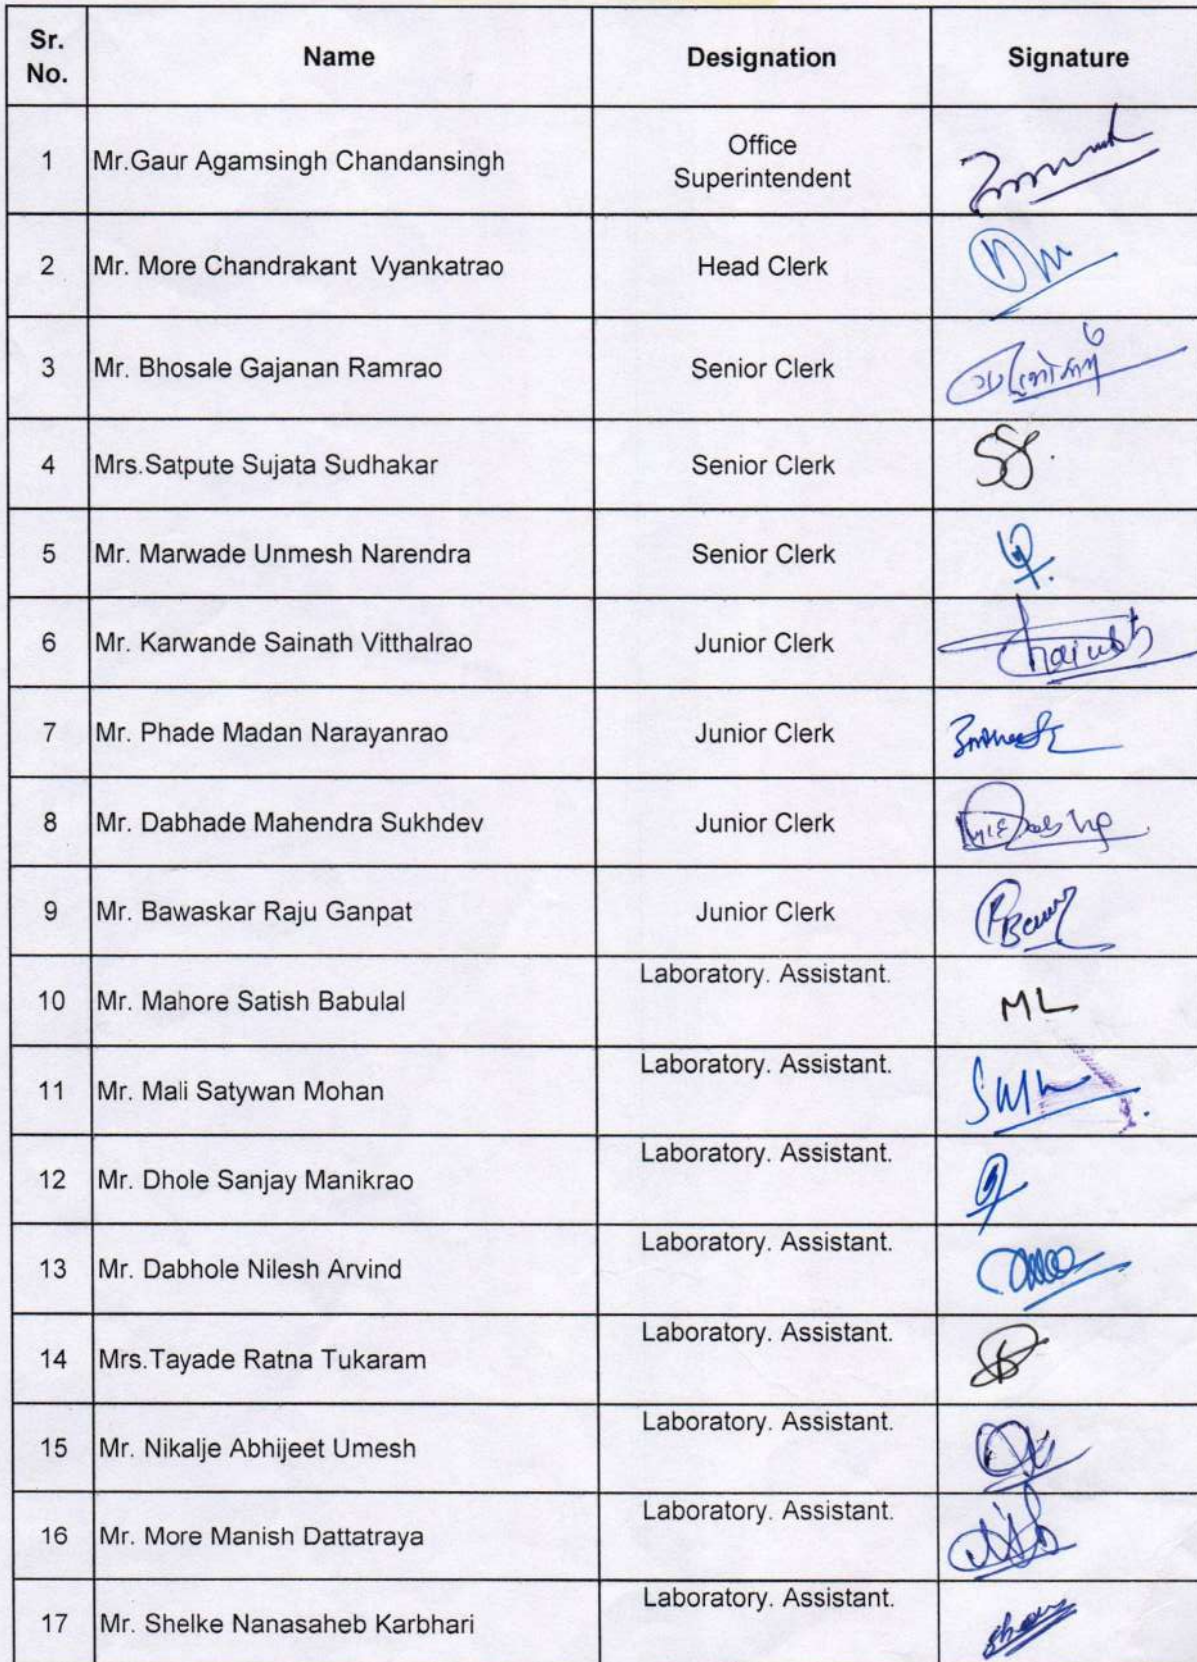 Sr. No. Name Designation Signature
1 Mr.Gaur Agamsingh Chandansingh Office Superintendent
2 Mr. More Chandrakant Vyankatrao Head Clerk
3 Mr. Bhosale Gajanan Ramrao Senior Clerk
4 Mrs.Satpute Sujata Sudhakar Senior Clerk
5 Mr. Marwade Unmesh Narendra Senior Clerk
6 Mr. Karwande Sainath Vitthalrao Junior Clerk
7 Mr. Phade Madan Narayanrao Junior Clerk
8 Mr. Dabhade Mahendra Sukhdev Junior Clerk
9 Mr. Bawaskar Raju Ganpat Junior Clerk
10 Mr. Mahore Satish Babulal Laboratory. Assistant. ML
11 Mr. Mali Satywan Mohan Laboratory. Assistant.
12 Mr. Dhole Sanjay Manikrao Laboratory. Assistant.
13 Mr. Dabhole Nilesh Arvind Laboratory. Assistant.
14 Mrs.Tayade Ratna Tukaram Laboratory. Assistant.
15 Mr. Nikalje Abhijeet Umesh Laboratory. Assistant.
16 Mr. More Manish Dattatraya Laboratory. Assistant.
17 Mr. Shelke Nanasaheb Karbhari Laboratory. Assistant.